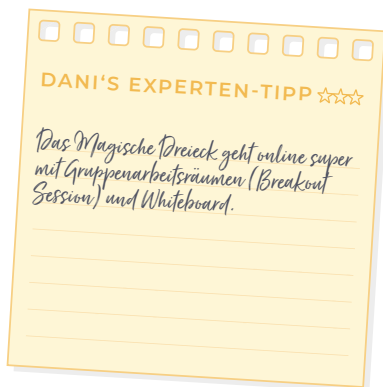 DANI'S EXPERTEN-TIPP
Das Magische Dreieck geht online super
mit Gruppenarbeitsräumen (Breakout
Session) und Whiteboard.